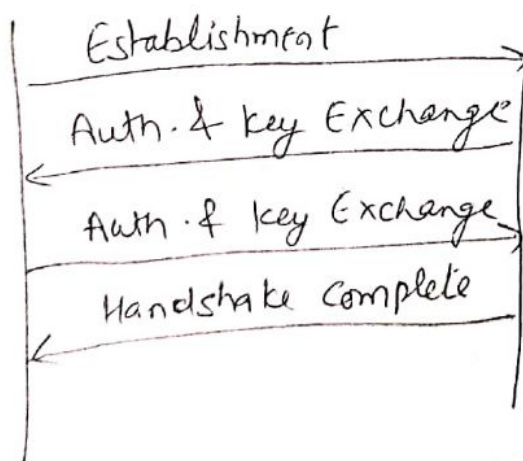 Establishment
Auth. & key Exchange
Auth. & key Exchange
Handshake Complete